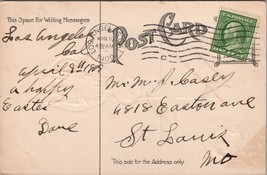 This Space For Writing Messages
POST CARD
Los Angeles
Cal
April 8th
a happy
Easter
Dave
Mr. M. A. Casley
4818 Easton ave
St Louis
Mo
This side for the Address only